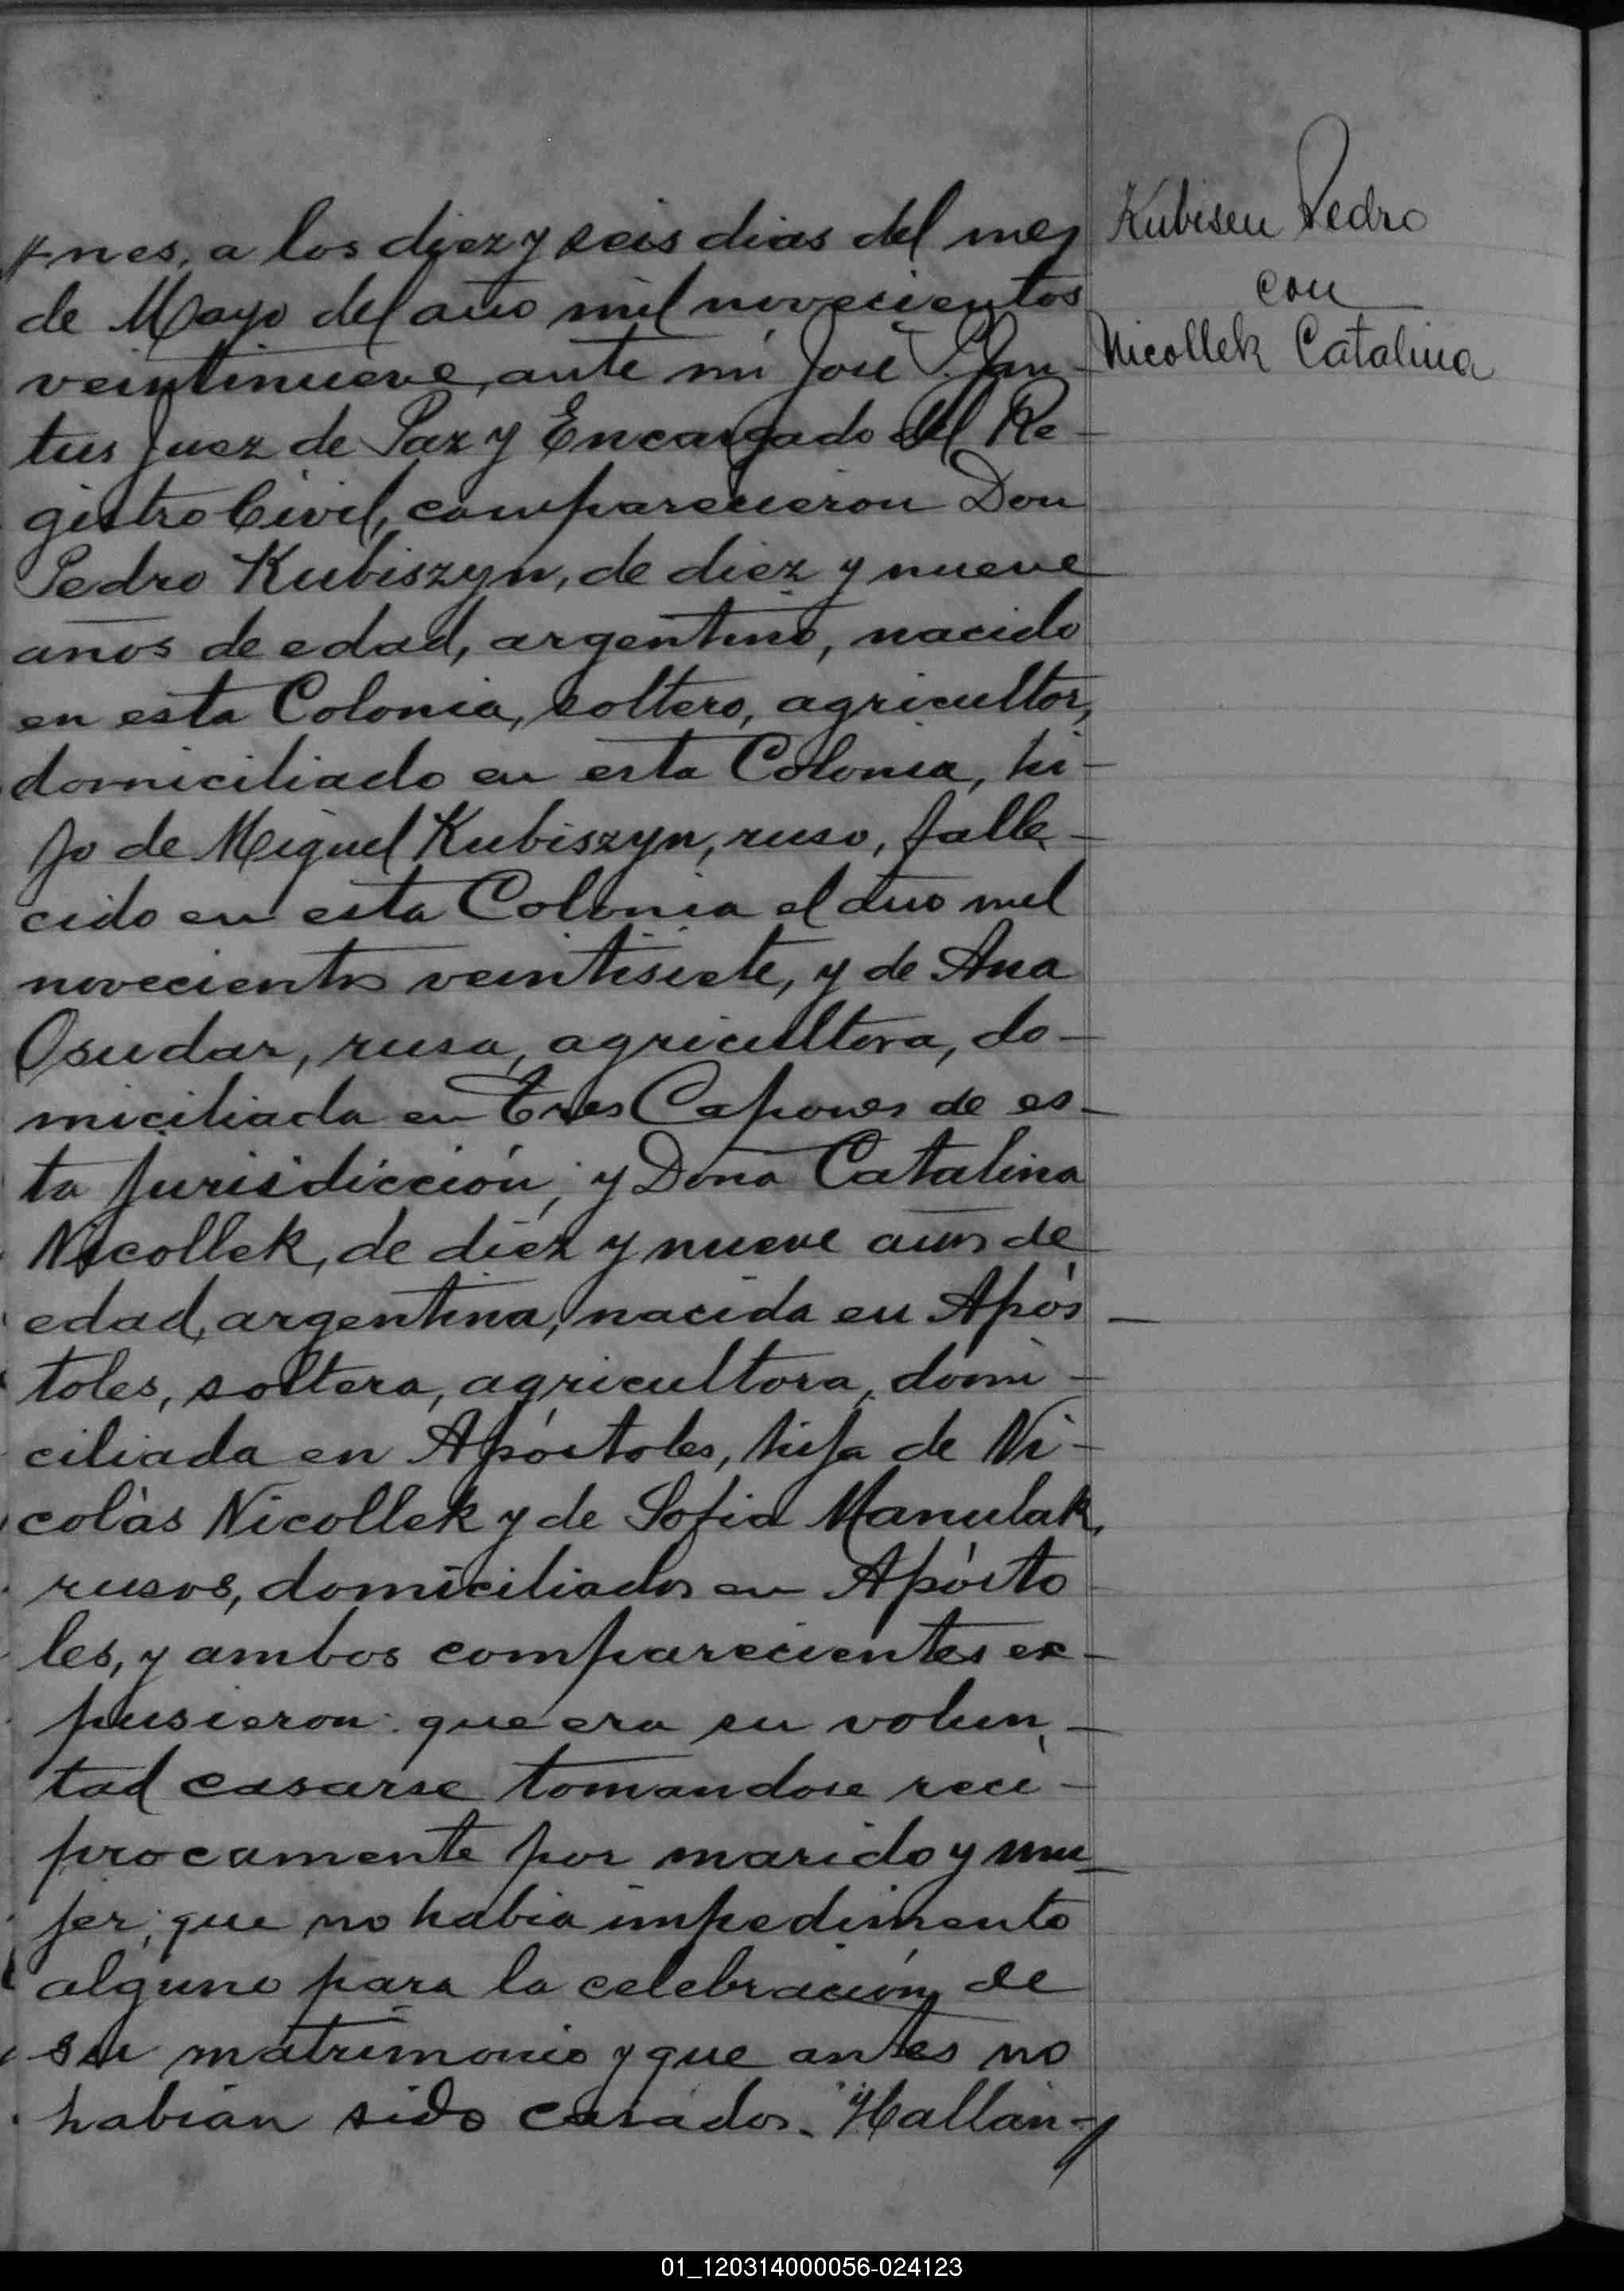 nes, a los diez y seis dias del mes
de Mayo del año mil novecientos
veintinueve, ante mi José
tus Juez de Paz y Encargado del Re-
gistro Civil, comparecieron Don
Pedro Kubiszyn, de diez y nueve
años de edad, argentino, nacido
en esta Colonia, soltero, agricultor,
domiciliado en esta Colonia, hi-
jo de Miguel Kubiszyn, ruso, falle-
cido en esta Colonia el año mil
novecientos veintisiete, y de Ana
Osudar, rusa, agricultora, do-
miciliada en Tres Capones de es-
ta jurisdicción; y Doña Catalina
Nicollek, de diez y nueve años de
edad, argentina, nacida en Após-
toles, soltera, agricultora, domi-
ciliada en Apóstoles, hija de Ni-
colás Nicollek y de Sofia Manulak,
rusos, domiciliados en Apósto
les, y ambos comparecientes ex-
pusieron: que era su volun-
tad casarse tomandose reci-
procamente por marido y mu-
jer; que no habia impedimento
alguno para la celebración de
su matrimonio y que antes no
habian sido casados. Hallan-
Kubiseu Pedro
con
Nicollek Catalina
01_120314000056-024123